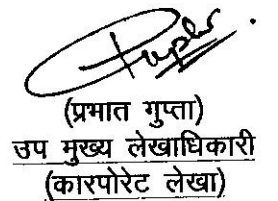 (प्रभात गुप्ता)
उप मुख्य लेखाधिकारी
(कारपोरेट लेखा)